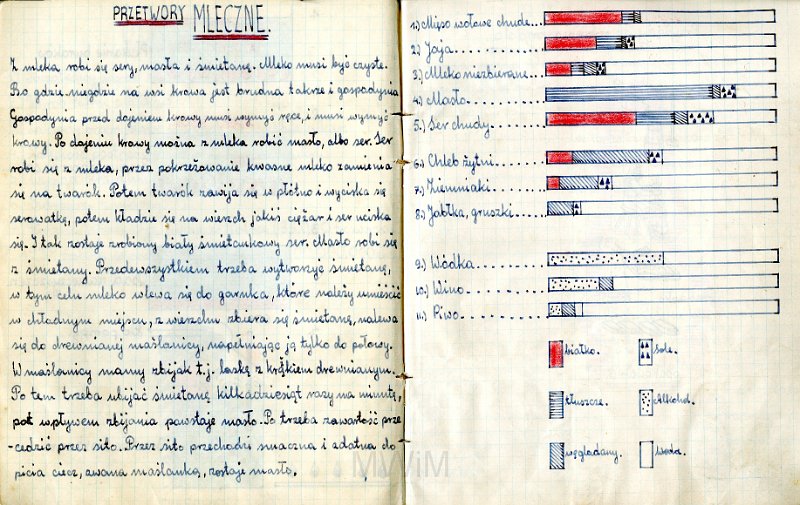 PRZETWORY MLECZNE.
Z mleka robi się sery, masła i śmietanę. Mleko musi być czyste.
Bo gdzie niegdzie na wsi krowa jest brudna także i gospodynia
Gospodynia przed dojeniem krowy musi wymyć ręce, i musi wymyć
krowy. Po dojeniu krowy można z mleka robić masło, albo ser. Ser
robi się z mleka, przez pokrzeżowanie kwasne mleko zamienia
się na twarók. Potem twarók zawija się w płótno i wyciska się
serowatkę, potem kładzie się na wierzch jakiś ciężar i ser uciska
się. I tak zostaje zrobiony biały śmietankowy ser. Masło robi się
z śmietany. Przedewszystkiem trzeba wytworzyć śmietanę,
w tym celu mleko wlewa się do garnka, które należy umieścić
w chłodnym miejscu, z wierzchu zbiera się śmietanę, nalewa
się do drewnianej maślanicy, napełniając ją tylko do połowy.
W maślanicy mamy zbijak t.j. laskę z krążkiem drewnianym.
Po tem trzeba ubijać śmietanę kilkadziesiąt razy na minutę,
pot wpływem zbijania powstaje masło. Po trzeba zawartość prze
-cedzić przez sito. Przez sito przechodzi smaczna i zdatna do
picia ciecz, zwana maślanką, zostaje masło.
1.) Mięso wołowe chude...
2.) Jaja
3.) Mleko niezbierane...
4.) Masło
5.) Ser chudy
6.) Chleb żytni
7.) Ziemniaki
8.) Jabłka, gruszki
9.) Wódka
10.) Wino
11.) Piwo
białko. Sole.
tłuszcze. Alkohol.
węglodany. Woda.
MWiM